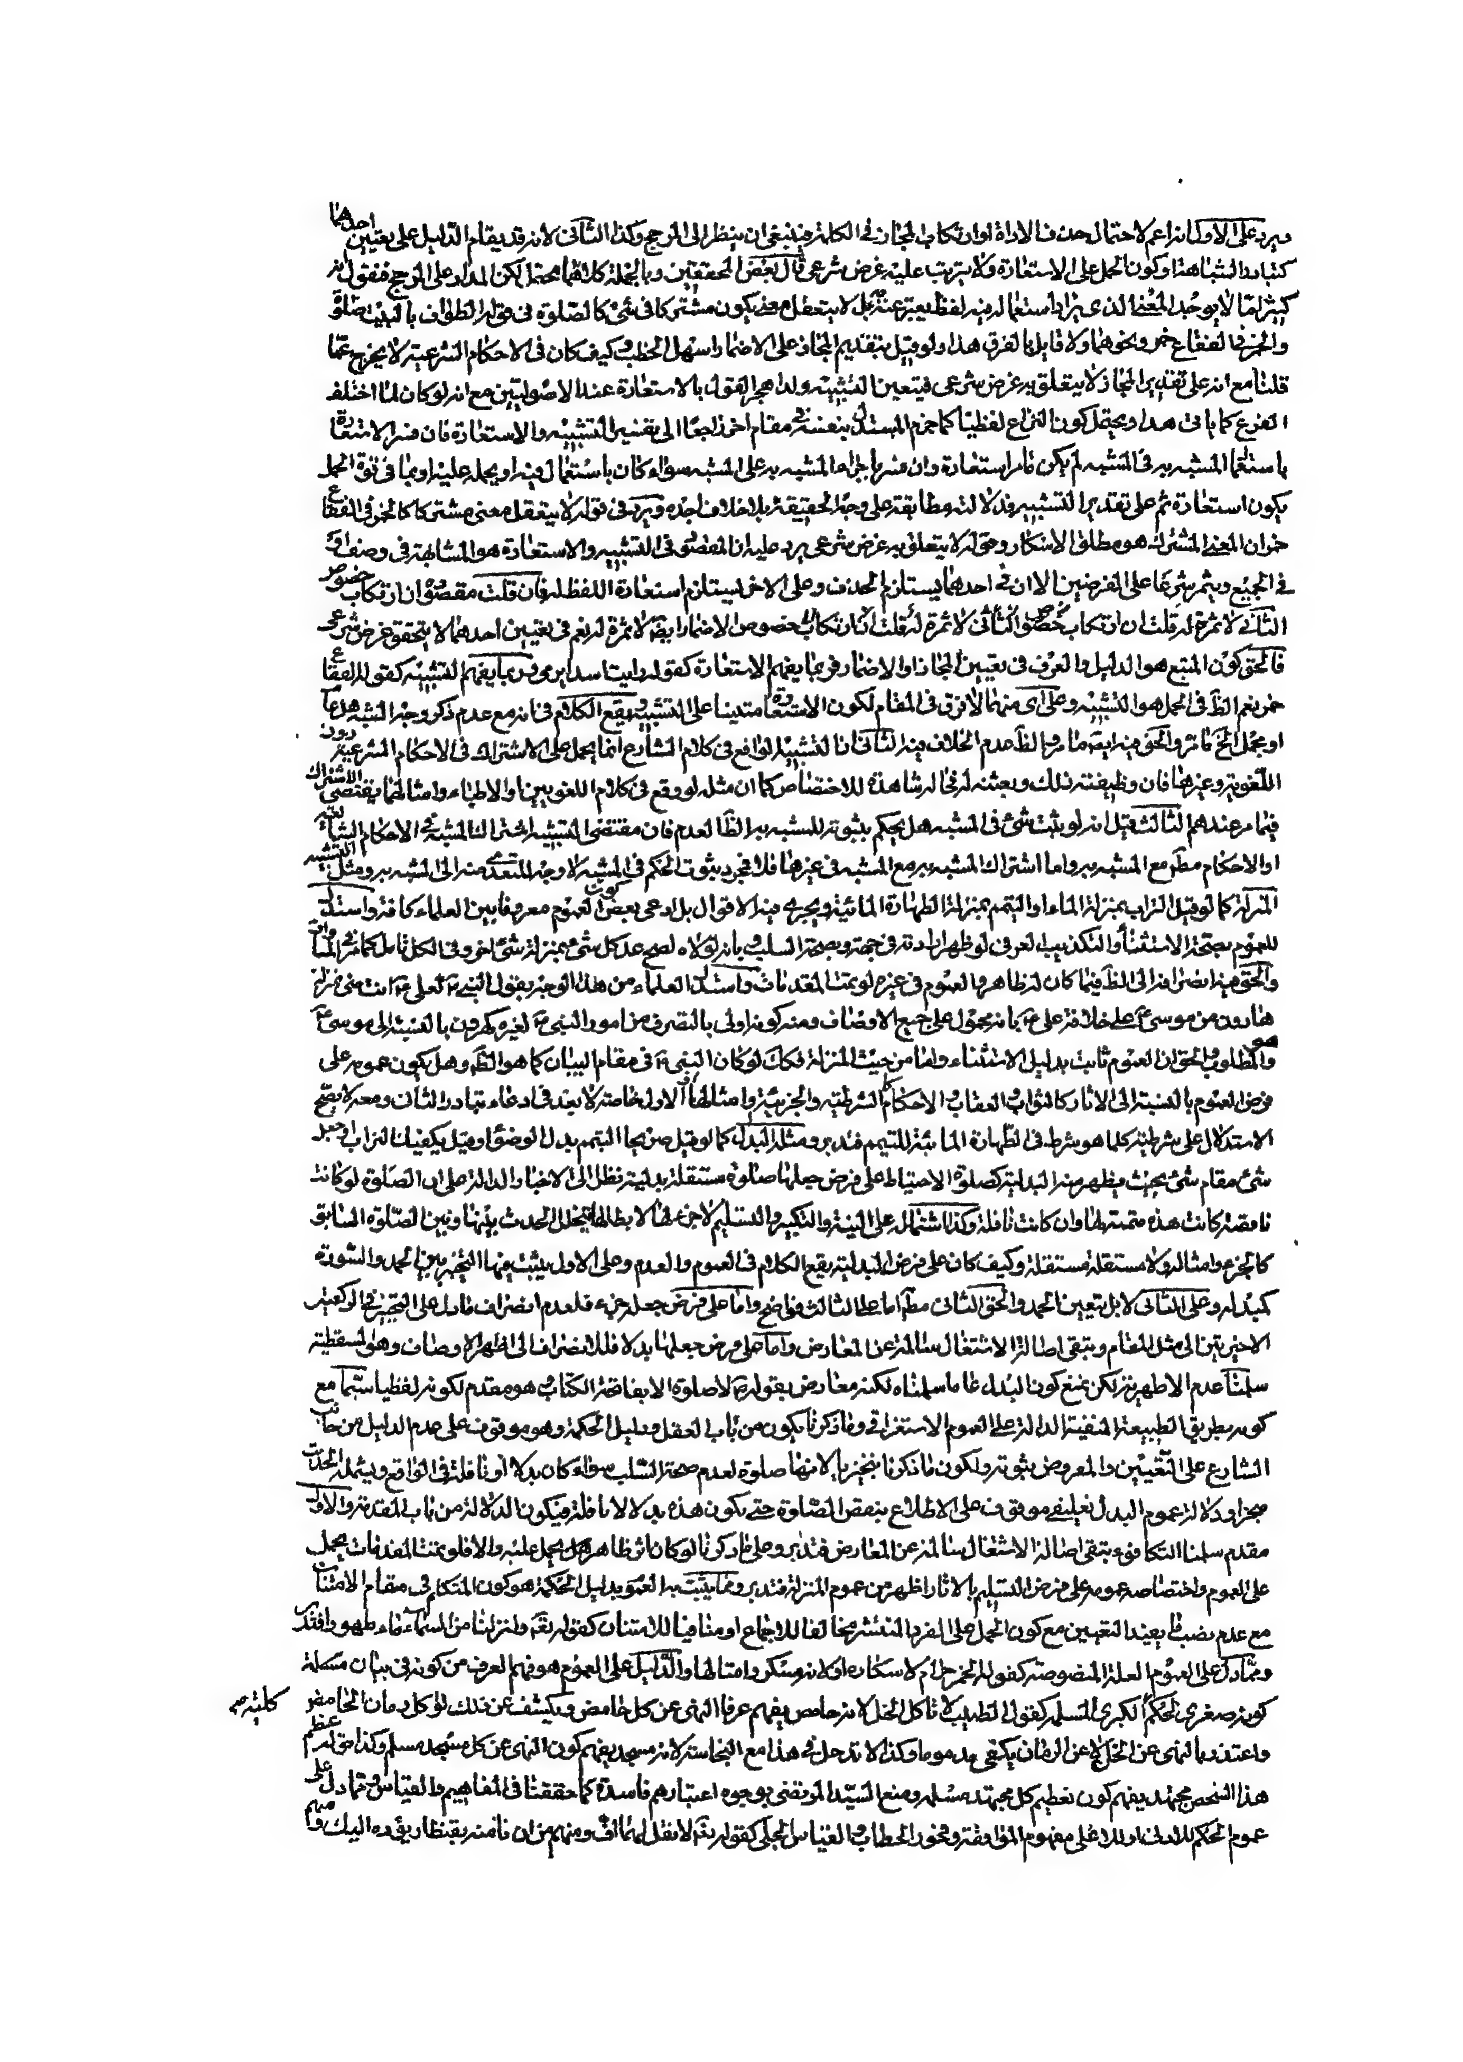 ويرد على الاول انه اعم لاحتمال حذف الاداة او ارتكاب المجاز فى الكلمة فينبغى ان ينظر الى المرجح وكذا الثانى لانه قد يقام الدليل على تعيين احدهما
كتبادر التشبيه هذا وكون الحمل على الاستعارة ولا يترتب عليه غرض شرعى قال بعض المحققين وبالجملة كلاهما محتمل لكن المدار على المرجح فنقول انه
كثيرا ما لا يوجد المعنى الذى يراد استعماله فيه لفظ يعبر عنه به بل لا يتعقل معنى يكون مشتركا فى شئ كالصلوة فى قوله الطواف بالبيت صلوة
والخمر فى الفقاع خمر ونحوهما ولا قايل بالفرق هذا ولو قيل بتقديم المجاز على الاضمار اسهل الخطب وكيف كان فى الاحكام الشرعية لا يخرج عما
قلنا مع انه على تقدير المجاز لا يتعلق به غرض شرعى فيتعين التشبيه ولذا هجر القول بالاستعارة عند الاصوليين مع انه لو كان لما اختلف
الفرع كما ياتى هذا ويحتمل كون النزاع لفظيا كما جزم المستدل بنفسه فى مقام اخر راجعا الى تفسير التشبيه والاستعارة فان فسر الاستعارة
باستعمال المشبه به فى المشبه لم يكن ما مر استعارة وان فسر باجراء المشبه به على المشبه سواء كان باستعماله فيه او بحمله عليه او بما فى قوة الحمل
يكون استعارة ثم على تقدير التشبيه فدلالته مطابقة على وجه الحقيقة بلا خلاف اجده ويرد فى قوله لا يتعقل معنى مشتركا كالخمر فى الفقاع
خمر ان المعنى المشترك هو مطلق الاسكار وقوله لا يتعلق به غرض شرعى يرد عليه ان المقصود فى التشبيه والاستعارة هو المشابهة فى وصف او
فى الجميع ويثمر شرعا على الفرضين الا ان فى احدهما يستلزم الحذف وعلى الاخر يستلزم استعارة اللفظ له فان قلت مقصوده ان ارتكاب خصوص
الثانى لا ثمرة له قلت ان ارتكاب خصوص الثانى لا ثمرة له قلت ان ارتكاب خصوص الاضمار ايضا لا ثمرة له نعم فى تعيين احدهما لا يتحقق غرض شرعى
فالحق كون المتبع هو الدليل والعرف فى تعيين المجاز او الاضمار فربما يفهم الاستعارة كقوله رايت اسدا يرمى وربما يفهم التشبيه كقوله الفقاع
خمر نعم الظ فى المجمل هو التشبيه وعلى اى منهما لا فرق فى المقام لكون الاستعارة مبتنيا على التشبيه ويقع الكلام فى انه مع عدم ذكر وجه الشبه هل عام
او مجمل الخ ما مر والحق فيه ايضا ما مر والظ عدم الخلاف فيه الثانى ان التشبيه الواقع فى كلام الشارع انما يحمل على الاشتراك فى الاحكام الشرعية دون
اللغوية وغيرها فان وظيفته ذلك وبعثته له فحاله شاهدة للاختصاص كما ان مثله لو وقع فى كلام اللغويين او الاطباء وامثالهما يقتضى الاشتراك
فيما مر عندهم الثالث قيل انه لو يثبت شئ فى المشبه هل يحكم بثبوته للمشبه به الظ العدم فان مقتضى التشبيه اشتراك المشبه فى الاحكام الشايعة
او الاحكام مطلقا مع المشبه به واما اشتراك المشبه به مع المشبه فى غيرها فلا فمجرد ثبوت الحكم فى المشبه لا وجه للتعدى منه الى المشبه به ومثل التشبيه
المنزلة كما لو قيل التراب بمنزلة الماء او التيمم بمنزلة الطهارة المائية ويجرى فيه الاقوال بل ادعى بعض كون العموم معروفا بين العلماء كافة واستدل
للعموم بصحة الاستثناء والتكذيب العرفى لو ظهر ارادته فى جهة وبصحة السلب وبانه لولاه لصح عد كل شئ بمنزلة شئ اخر وفى الكل تامل كما مر فى المساواة
والحق فيه انصرافه الى الظ فيما كان له ظاهر والعموم فى غيره لو تمت المقدمات واستدل العلماء من هذا الوجه بقول النبى ص لعلى ع انت منى بمنزلة
هارون من موسى على خلافة على ع بانه محمول على جميع الاوصاف ومنه كونه اولى بالتصرف من امور النبى ص لغيره كهرون بالنسبة الى موسى ع
والمطلوب هو والحق ان العموم ثابت بدليل الاستثناء واما من حيث المنزلة فكك لو كان النبى ص فى مقام البيان كما هو الظ وهل يكون عموم على
فرض العموم بالنسبة الى الاثار كالثواب والعقاب او الاحكام كالشرطية والجزئية وامثالها او الاول خاصة لا يبعد فى ادعاء تبادر الثانى ومعه لا يصح
الاستدلال على شرطية كلما هو شرط فى الطهارة المائية للتيمم فتدبر ومثله البدل كما لو قيل صريحا التيمم بدل الوضوء او قيل يكفيك التراب او جعل
شئ مقام شئ بحيث يظهر منه البدلية كصلوة الاحتياط على فرض جعلها صلوة مستقلة بدلية نظرا الى الاخبار الدالة على ان الصلوة لو كانت
ناقصة كانت هذه متممة لها وان كانت نافلة وكذا اشتماله على النية والتكبير والتسليم لا جزء لها لا بطالها بتخلل الحدث بينها وبين الصلوة السابق
كالجزء وامثاله ولا مستقلة مستقلة وكيف كان على فرض البدلية يقع الكلام فى العموم والعدم وعلى الاول يثبت فيها التخيير بين الحمد والسورة
كمبدله وعلى الثانى لا بل يتعين الحمد والحق الثانى مطلقا اما على الثالث فواضح واما على فرض جعله جزء فلعدم انصراف ما دل على التخيير فى الركعتين
الاخيرتين الى مثل المقام ويبقى اصالة الاشتغال سالمة عن المعارض واما على فرض جعلها بدلا فللانصراف الى اظهر الاوصاف وهو المسقطية
سلمنا عدم الاظهرية لكن يمنع كون البدل عاما سلمناه لكنه معارض بقوله ص لا صلوة الا بفاتحة الكتاب وهو مقدم لكونه لفظيا سيما مع
كونه بطريق الطبيعة المنفية الدالة على العموم الاستغراقى وما ذكرنا يكون من باب العقل ودليل الحكمة وهو موقوف على عدم الدليل من جانب
الشارع على التعيين والمعروض ثبوته ولكون ما ذكرنا بخبر الا منها صلوة لعدم صحة السلب سواء كان بدلا او نافلة فى الواقع ويشمله الحديث
جزا ودلالة عموم البدل تعليقى موقوف على الاطلاع بنقص الصلوة حتى يكون هذه بدلا لا نافلة فيكون الدلالة من باب المقدمة والاول
مقدم سلمنا التكافوء ويبقى اصالة الاشتغال سالمة عن المعارض فتدبر وعلى ما ذكرنا لو كان اثر ظاهر هل يحمل عليه والا فلو تمت المقدمات يحمل
على العموم واختصاصه عموم على فرض التسليم بالاثار اظهر من عموم المنزلة فتدبر ومما يثبت به العموم بدليل الحكمة هو كون المتكلم فى مقام الامتنان
مع عدم نصب ما يفيد التعيين مع كون الحمل على الفرد المنتشر مخالفا للاجماع او منافيا للامتنان كقوله تعالى وانزلنا من السماء ماء طهورا فتدبر
ومما دل على العموم العلة المنصوصة كقوله الخمر حرام لاسكاره او لانه مسكر وامثالها والدليل على العموم هو فهم العرف من كونه فى بيان مسئلة
كونه صغرى لحكم الكبرى المسلم كقول الطبيب لا تاكل الخل لانه حامض يفهم عرفا النهى عن كل حامض ويكشف عن ذلك لو اكل رمان الحامض كلية صح
واعتذر بالنهى عن الخل لا عن الرمان يكفى مذموما وكذا لا تدخل فى هذا مع النجاسة لانه مسجد يفهم كون النهى عن كل مسجد مسلم وكذا قوله عظم
هذا الشخص مجتهد يفهم كون تعظيم كل مجتهد مسلم ومنع السيد المرتضى بوجوه اعتبارهم فاسدة كما حققنا فى المفاهيم والقياس ومما دل على
عموم الحكم للادنى او للاعلى مفهوم الموافقة وفحوى الخطاب والقياس الجلى كقوله تعالى لا تقل لهما اف ومنهم من ان تامنه بقنطار يؤده اليك وامنهم